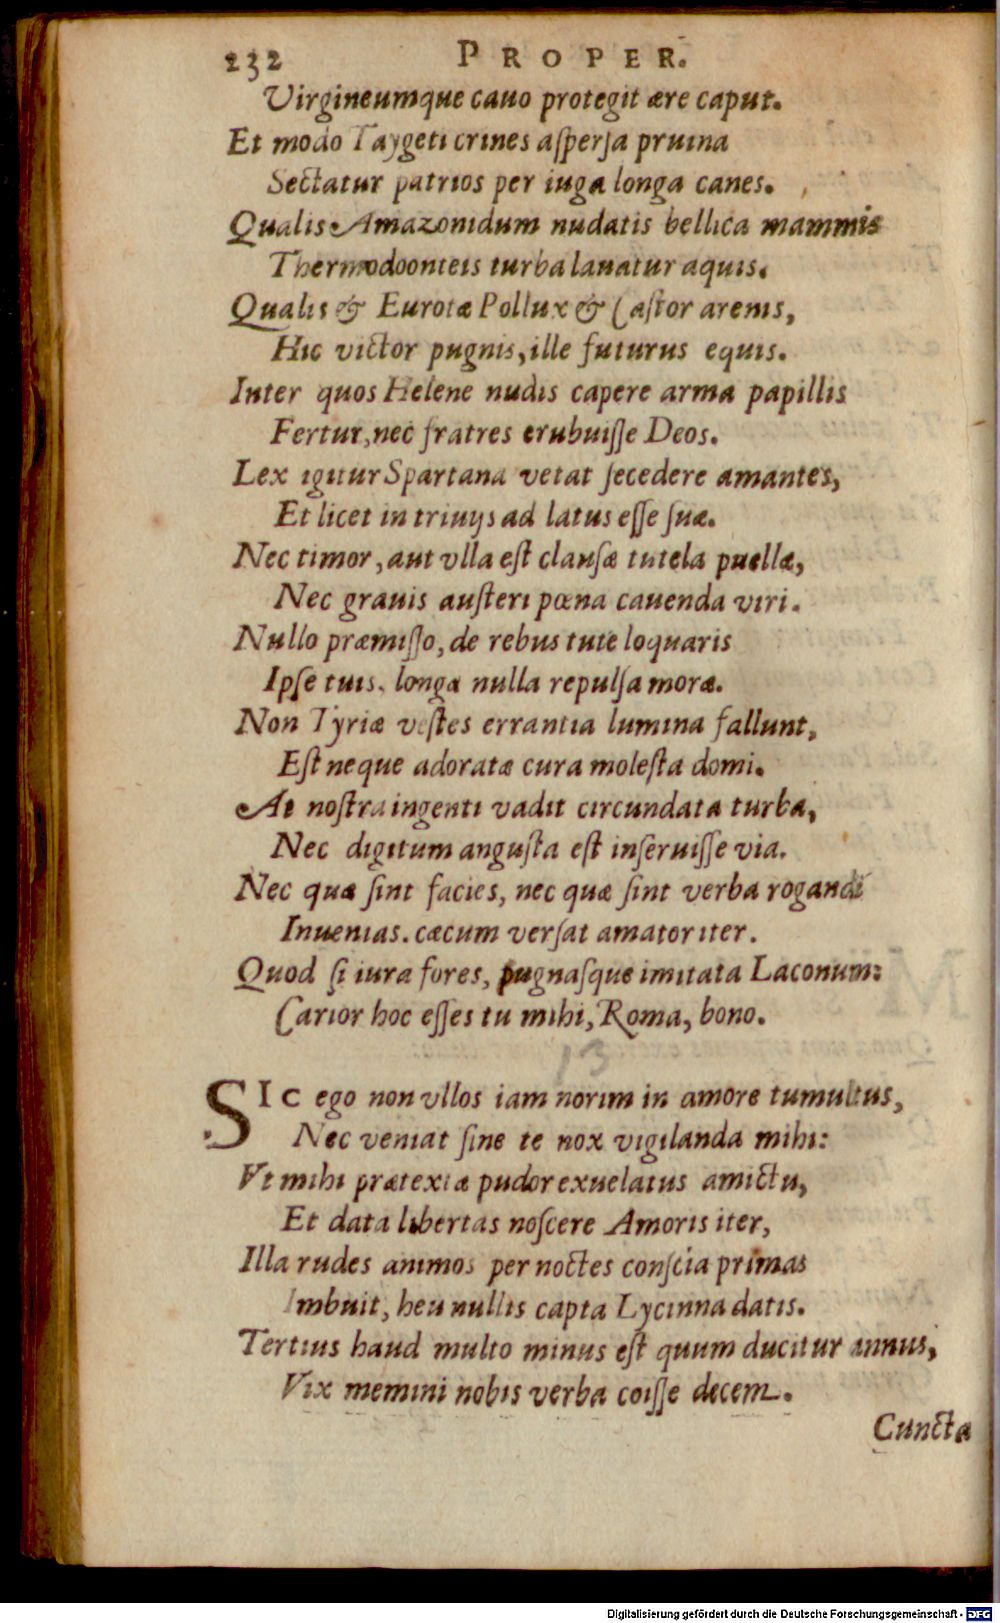 232 PROPER.
Virgineumque cauo protegit ære caput.
Et modo Taygeti crines aſperſa pruina
Sectatur patrios per iuga longa canes.
Qualis Amazonidum nudatis bellica mammis
Thermodoonteis turba lauatur aquis.
Qualis & Eurotæ Pollux & Caſtor arenis,
Hic victor pugnis, ille futurus equis.
Inter quos Helene nudis capere arma papillis
Fertur, nec fratres erubuiſſe Deos.
Lex igitur Spartana vetat ſecedere amantes,
Et licet in triuijs ad latus eſſe ſuæ.
Nec timor, aut vlla eſt clauſæ tutela puellæ,
Nec grauis auſteri pœna cauenda viri.
Nullo præmiſſo, de rebus tute loquaris
Ipſe tuis. longæ nulla repulſa moræ.
Non Tyriæ veſtes errantia lumina fallunt,
Eſt neque adoratæ cura moleſta domi.
At noſtra ingenti vadit circundata turba,
Nec digitum anguſta eſt inſeruiſſe via.
Nec quæ ſint facies, nec quæ ſint verba rogandi
Inuenias. cæcum verſat amator iter.
Quod ſi iura fores, pugnaſque imitata Laconum:
Carior hoc eſſes tu mihi, Roma, bono.
13
SIC ego non vllos iam norim in amore tumultus,
Nec veniat ſine te nox vigilanda mihi:
Vt mihi prætextæ pudor exuelatus amictu,
Et data libertas noſcere Amoris iter,
Illa rudes animos per noctes conſcia primas
Imbuit, heu nullis capta Lycinna datis.
Tertius haud multo minus eſt quum ducitur annus,
Vix memini nobis verba coiſſe decem.
Cuncta
Digitalisierung gefördert durch die Deutsche Forschungsgemeinschaft - DFG